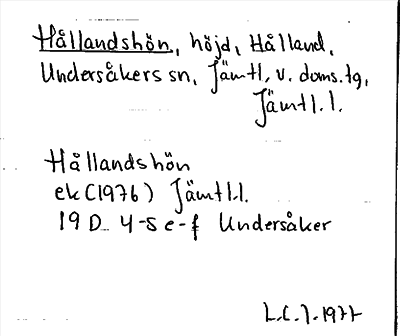 Hållandshön, höjd, Hålland,
Undersåkers sn, Jämtl, v. doms.tg,
Jämtl.l.
Hållandshön
ek (1976) Jämtl.l.
19 D 4-5 e-f Undersåker
L.C.J. 1977